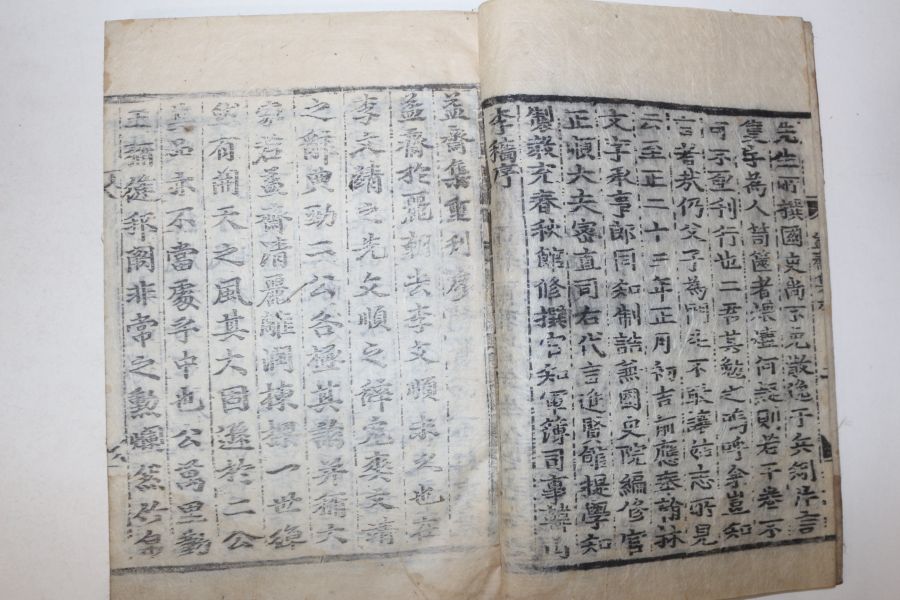 先生所撰國史尚不免散逸于兵矧片言
隻字爲人笥篋者壞燼何疑則若干卷不
可不亟刊行也二君其勉之嗚呼豈知
言者哉仍父子爲門生不敢讓姑志所見
云至正二十三年正月初吉前應奉翰林
文字承事郎同知制誥兼國史院編修官
正順大夫密直司右代言進賢館提學知
製敎充春秋館修撰官知軍簿司事韓山
李穡序
益齋集重刊序
益齋於麗朝去李文順未久也在
李文靖之先文順之解克爽文靖
之辭典勁二公各極其詣并稱大
家若益齋清麗雅闊揀擇一世
然有開天之風其大固遜於二公
其品亦不當處子中也公萬里勤
王彌從邪閼非常之勳爀然竹帛